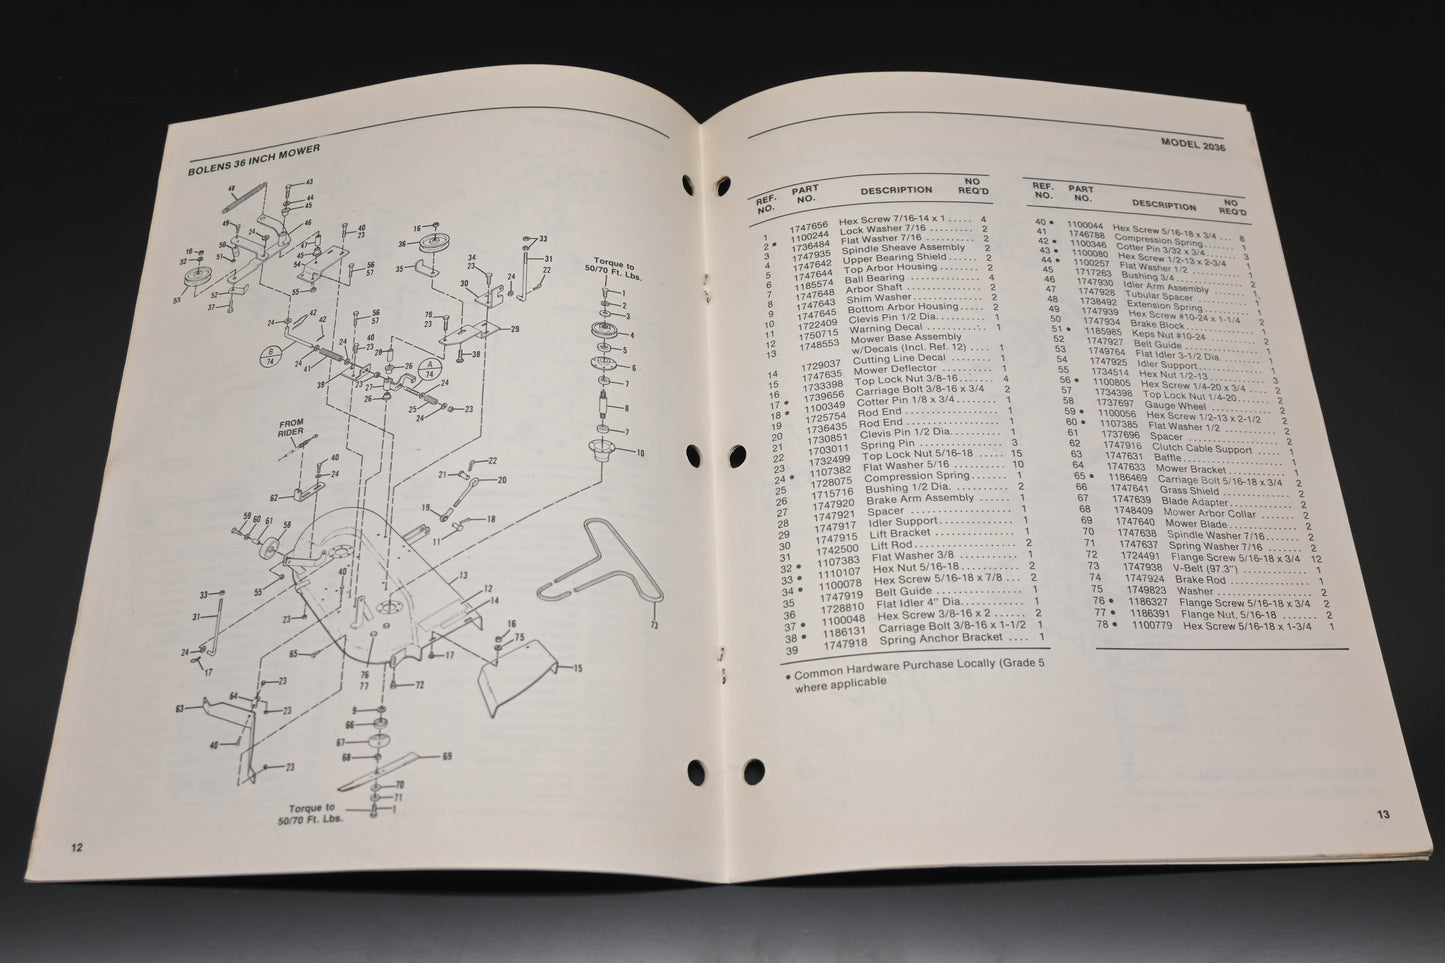 BOLENS 36 INCH MOWER
48
43
44
45
46
49
24
40
23
47
45
50
16
32
51
54
56
57
53
52
37
55
16
36
35
34
23
33
31
24
22
30
78
23
29
38
Torque to
50/70 Ft. Lbs.
1
2
3
4
5
6
7
8
7
10
24
42
42
56
57
B
74
24
41
24
40
23
39
23
28
27
26
26
A
74
24
25
24
23
FROM
RIDER
40
24
62
22
21
20
19
18
11
59
60
61
58
55
33
31
24
17
23
40
13
12
14
73
65
16
75
17
15
76
77
72
23
64
63
23
40
23
9
66
67
68
69
70
71
1
Torque to
50/70 Ft. Lbs.
12
MODEL 2036
REF. NO. PART NO. DESCRIPTION NO REQ'D
1 1747656 Hex Screw 7/16-14 x 1 ..... 4
2 • 1100244 Lock Washer 7/16 ......... 2
3 1736484 Flat Washer 7/16 .......... 2
4 1747935 Spindle Sheave Assembly 2
5 1747642 Upper Bearing Shield ...... 2
6 1747644 Top Arbor Housing ........ 2
7 1185574 Ball Bearing .............. 4
8 1747648 Arbor Shaft ............... 2
9 1747643 Shim Washer ............. 2
10 1747645 Bottom Arbor Housing ..... 2
11 1722409 Clevis Pin 1/2 Dia. ......... 1
12 1750715 Warning Decal ............ 1
13 1748553 Mower Base Assembly
w/Decals (Incl. Ref. 12) .... 1
14 1729037 Cutting Line Decal ........ 1
15 1747635 Mower Deflector .......... 1
16 1733398 Top Lock Nut 3/8-16 ....... 4
17 • 1739656 Carriage Bolt 3/8-16 x 3/4 2
18 • 1100349 Cotter Pin 1/8 x 3/4 ....... 1
19 1725754 Rod End ................. 1
20 1736435 Rod End ................. 1
21 1730851 Clevis Pin 1/2 Dia. ......... 1
22 1703011 Spring Pin ............... 3
23 1732499 Top Lock Nut 5/16-18 ..... 15
24 • 1107382 Flat Washer 5/16 ......... 10
25 1728075 Compression Spring ....... 1
26 1715716 Bushing 1/2 Dia. .......... 2
27 1747920 Brake Arm Assembly ...... 1
28 1747921 Spacer .................. 1
29 1747917 Idler Support ............. 1
30 1747915 Lift Bracket .............. 1
31 1742500 Lift Rod ................. 2
32 • 1107383 Flat Washer 3/8 ........... 1
33 • 1110107 Hex Nut 5/16-18 ........... 2
34 • 1100078 Hex Screw 5/16-18 x 7/8 ... 2
35 1747919 Belt Guide ............... 1
36 1728810 Flat Idler 4" Dia. .......... 1
37 • 1100048 Hex Screw 3/8-16 x 2 ...... 2
38 • 1186131 Carriage Bolt 3/8-16 x 1-1/2 1
39 1747918 Spring Anchor Bracket .... 1
• Common Hardware Purchase Locally (Grade 5
where applicable
REF. NO. PART NO. DESCRIPTION NO REQ'D
40 • 1100044 Hex Screw 5/16-18 x 3/4 ... 8
41 1746788 Compression Spring ....... 1
42 • 1100346 Cotter Pin 3/32 x 3/4 ...... 3
43 • 1100080 Hex Screw 1/2-13 x 2-3/4 1
44 • 1100257 Flat Washer 1/2 .......... 1
45 1717263 Bushing 3/4 ............. 2
46 1747930 Idler Arm Assembly ....... 1
47 1747928 Tubular Spacer ........... 1
48 1738492 Extension Spring ......... 1
49 1747939 Hex Screw #10-24 x 1-1/4 2
50 1747934 Brake Block .............. 1
51 • 1185985 Keps Nut #10-24 .......... 2
52 1747927 Belt Guide ............... 1
53 1749764 Flat Idler 3-1/2 Dia. ....... 1
54 1747925 Idler Support ............. 1
55 1734514 Hex Nut 1/2-13 ............ 3
56 • 1100805 Hex Screw 1/4-20 x 3/4 .... 2
57 1734398 Top Lock Nut 1/4-20 ....... 2
58 1737697 Gauge Wheel ............. 2
59 • 1100056 Hex Screw 1/2-13 x 2-1/2 2
60 • 1107385 Flat Washer 1/2 ........... 2
61 1737696 Spacer .................. 2
62 1747916 Clutch Cable Support ..... 1
63 1747631 Baffle ................... 1
64 1747633 Mower Bracket ........... 1
65 • 1186469 Carriage Bolt 5/16-18 x 3/4 2
66 1747641 Grass Shield ............. 2
67 1747639 Blade Adapter ............ 2
68 1748409 Mower Arbor Collar ....... 2
69 1747640 Mower Blade ............. 2
70 1747638 Spindle Washer 7/16 ....... 2
71 1747637 Spring Washer 7/16 ....... 2
72 1724491 Flange Screw 5/16-18 x 3/4 12
73 1747938 V-Belt (97.3") ............. 1
74 1747924 Brake Rod ............... 1
75 1749823 Washer .................. 1
76 • 1186327 Flange Screw 5/16-18 x 3/4 2
77 • 1186391 Flange Nut, 5/16-18 ....... 2
78 • 1100779 Hex Screw 5/16-18 x 1-3/4 1
13